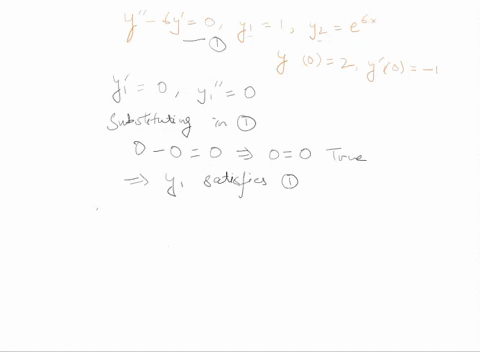 y'' - 6y' = 0, y1 = 1, y2 = e^6x
— ①
y (0) = 2, y'(0) = -1
y1' = 0, y1'' = 0
Substituting in ①
0 - 0 = 0 ⇒ 0 = 0 True
⇒ y1 satisfies ①